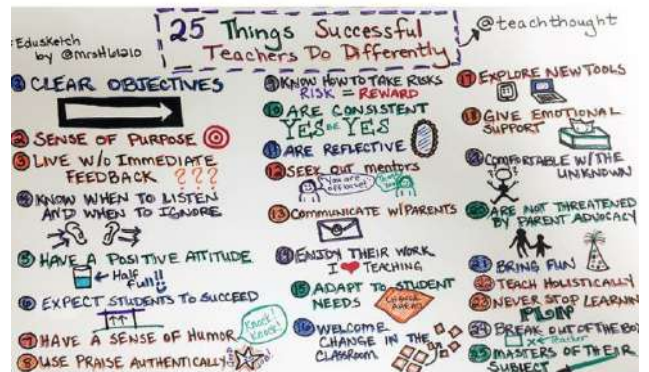 25 Things Successful
Teachers Do Differently
@teachthought
Edusketch
by @mrsHu61210
1 CLEAR OBJECTIVES
2 SENSE OF PURPOSE
3 LIVE W/O Immediate
FEEDBACK ? ? ?
4 KNOW WHEN TO LISTEN
AND WHEN TO IGNORE
5 HAVE A POSITIVE ATTITUDE
← Half
full!!
6 EXPECT STUDENTS TO SUCCEED
7 HAVE A SENSE OF HUMOR
Knock!
Knock!
8 USE PRAISE AUTHENTICALLY
9 KNOW HOW TO TAKE RISKS
RISK = REWARD
10 ARE CONSISTENT
YES BE YES
11 ARE REFLECTIVE
12 SEEK OUT mentors
You are
off base!
13 COMMUNICATE W/PARENTS
14 ENJOY THEIR WORK
I ❤ TEACHING
15 ADAPT TO STUDENT
NEEDS
CHANGE
AHEAD
16 WELCOME
CHANGE IN THE
CLASSROOM
17 EXPLORE NEW TOOLS
18 GIVE EMOTIONAL
SUPPORT
19 COMFORTABLE W/THE
UNKNOWN
20 ARE NOT THREATENED
BY PARENT ADVOCACY
21 BRING FUN
22 TEACH HOLISTICALLY
23 NEVER STOP LEARNIN
PLN
24 BREAK OUT OF THE BO
x ← Teacher
25 MASTERS OF THEIR
SUBJECT